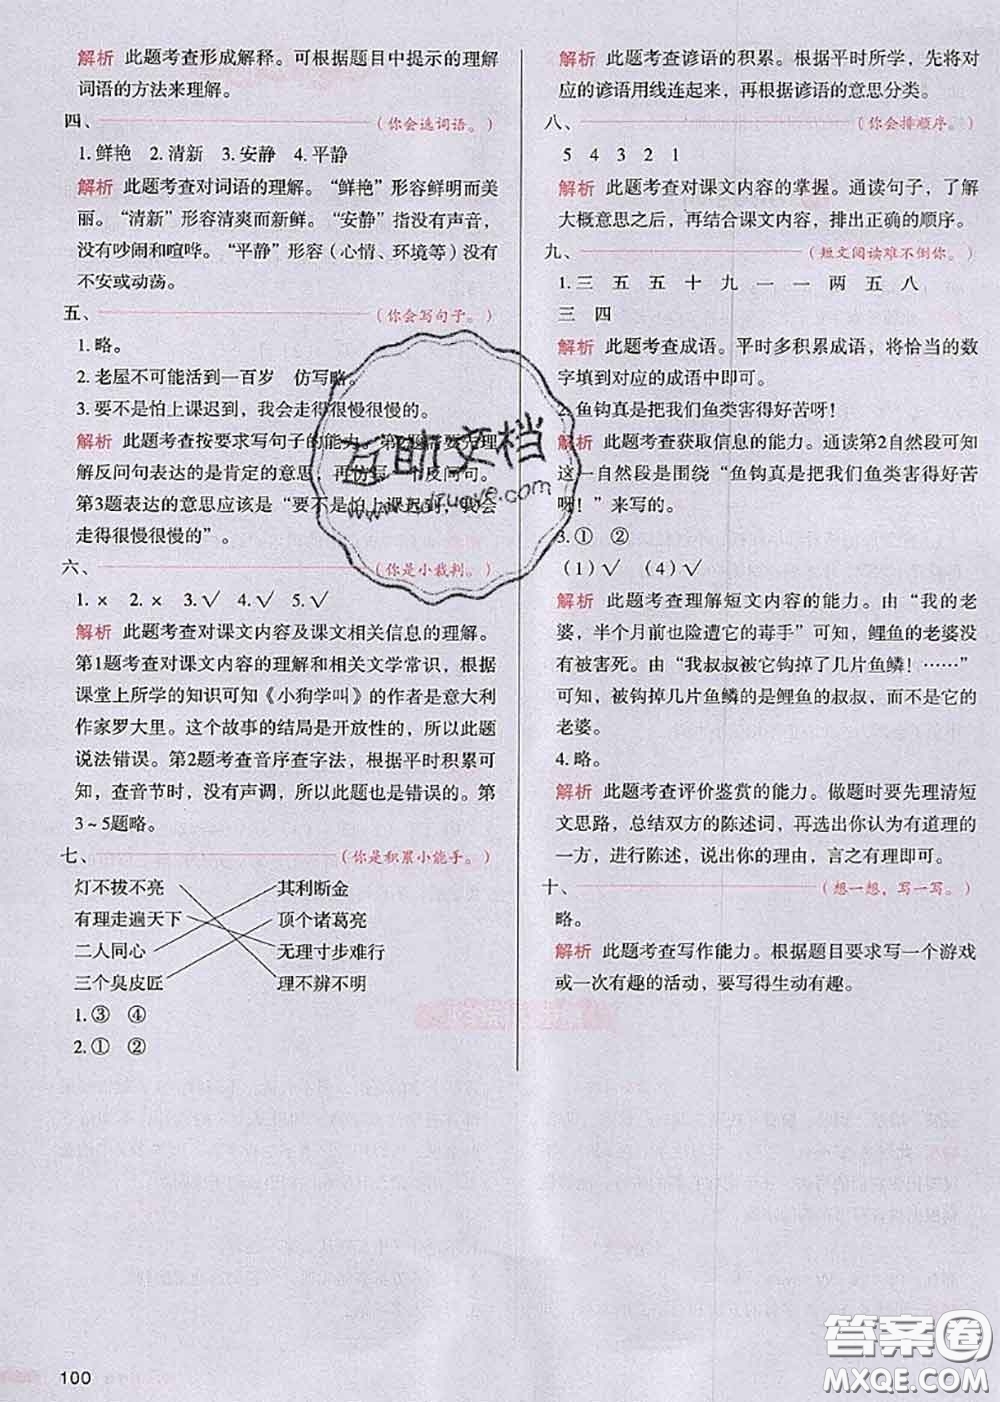 解析 此题考查形成解释。可根据题目中提示的理解
词语的方法来理解。
四、（你会选词语。）
1. 鲜艳 2. 清新 3. 安静 4. 平静
解析 此题考查对词语的理解。“鲜艳”形容鲜明而美
丽。“清新”形容清爽而新鲜。“安静”指没有声音，
没有吵闹和喧哗。“平静”形容（心情、环境等）没有
不安或动荡。
五、（你会写句子。）
1. 略。
2. 老屋不可能活到一百岁 仿写略。
3. 要不是怕上课迟到，我会走得很慢很慢的。
解析 此题考查按要求写句子的能力。第2题需要先理
解反问句表达的是肯定的意思，再仿写一个反问句。
第3题表达的意思应该是“要不是怕上课迟到，我会
走得很慢很慢的”。
六、（你是小裁判。）
1. × 2. × 3. √ 4. √ 5. √
解析 此题考查对课文内容及课文相关信息的理解。
第1题考查对课文内容的理解和相关文学常识，根据
课堂上所学的知识可知《小狗学叫》的作者是意大利
作家罗大里。这个故事的结局是开放性的，所以此题
说法错误。第2题考查音序查字法，根据平时积累可
知，查音节时，没有声调，所以此题也是错误的。第
3~5题略。
七、（你是积累小能手。）
灯不拨不亮 其利断金
有理走遍天下 顶个诸葛亮
二人同心 无理寸步难行
三个臭皮匠 理不辨不明
1. ③ ④
2. ① ②
100
解析 此题考查谚语的积累。根据平时所学，先将对
应的谚语用线连起来，再根据谚语的意思分类。
八、（你会排顺序。）
5 4 3 2 1
解析 此题考查对课文内容的掌握。通读句子，了解
大概意思之后，再结合课文内容，排出正确的顺序。
九、（短文阅读难不倒你。）
1. 三 五 五 十 九 一 一 两 五 八
三 四
解析 此题考查成语。平时多积累成语，将恰当的数
字填到对应的成语中即可。
2. 鱼钩真是把我们鱼类害得好苦呀！
解析 此题考查获取信息的能力。通读第2自然段可知
这一自然段是围绕“鱼钩真是把我们鱼类害得好苦
呀！”来写的。
3. ① ②
（1）√ （4）√
解析 此题考查理解短文内容的能力。由“我的老
婆，半个月前也险遭它的毒手”可知，鲤鱼的老婆没
有被害死。由“我叔叔被它钩掉了几片鱼鳞！……”
可知，被钩掉几片鱼鳞的是鲤鱼的叔叔，而不是它的
老婆。
4. 略。
解析 此题考查评价鉴赏的能力。做题时要先理清短
文思路，总结双方的陈述词，再选出你认为有道理的
一方，进行陈述，说出你的理由，言之有理即可。
十、（想一想，写一写。）
略。
解析 此题考查写作能力。根据题目要求写一个游戏
或一次有趣的活动，要写得生动有趣。
答案圈
MXQE.COM